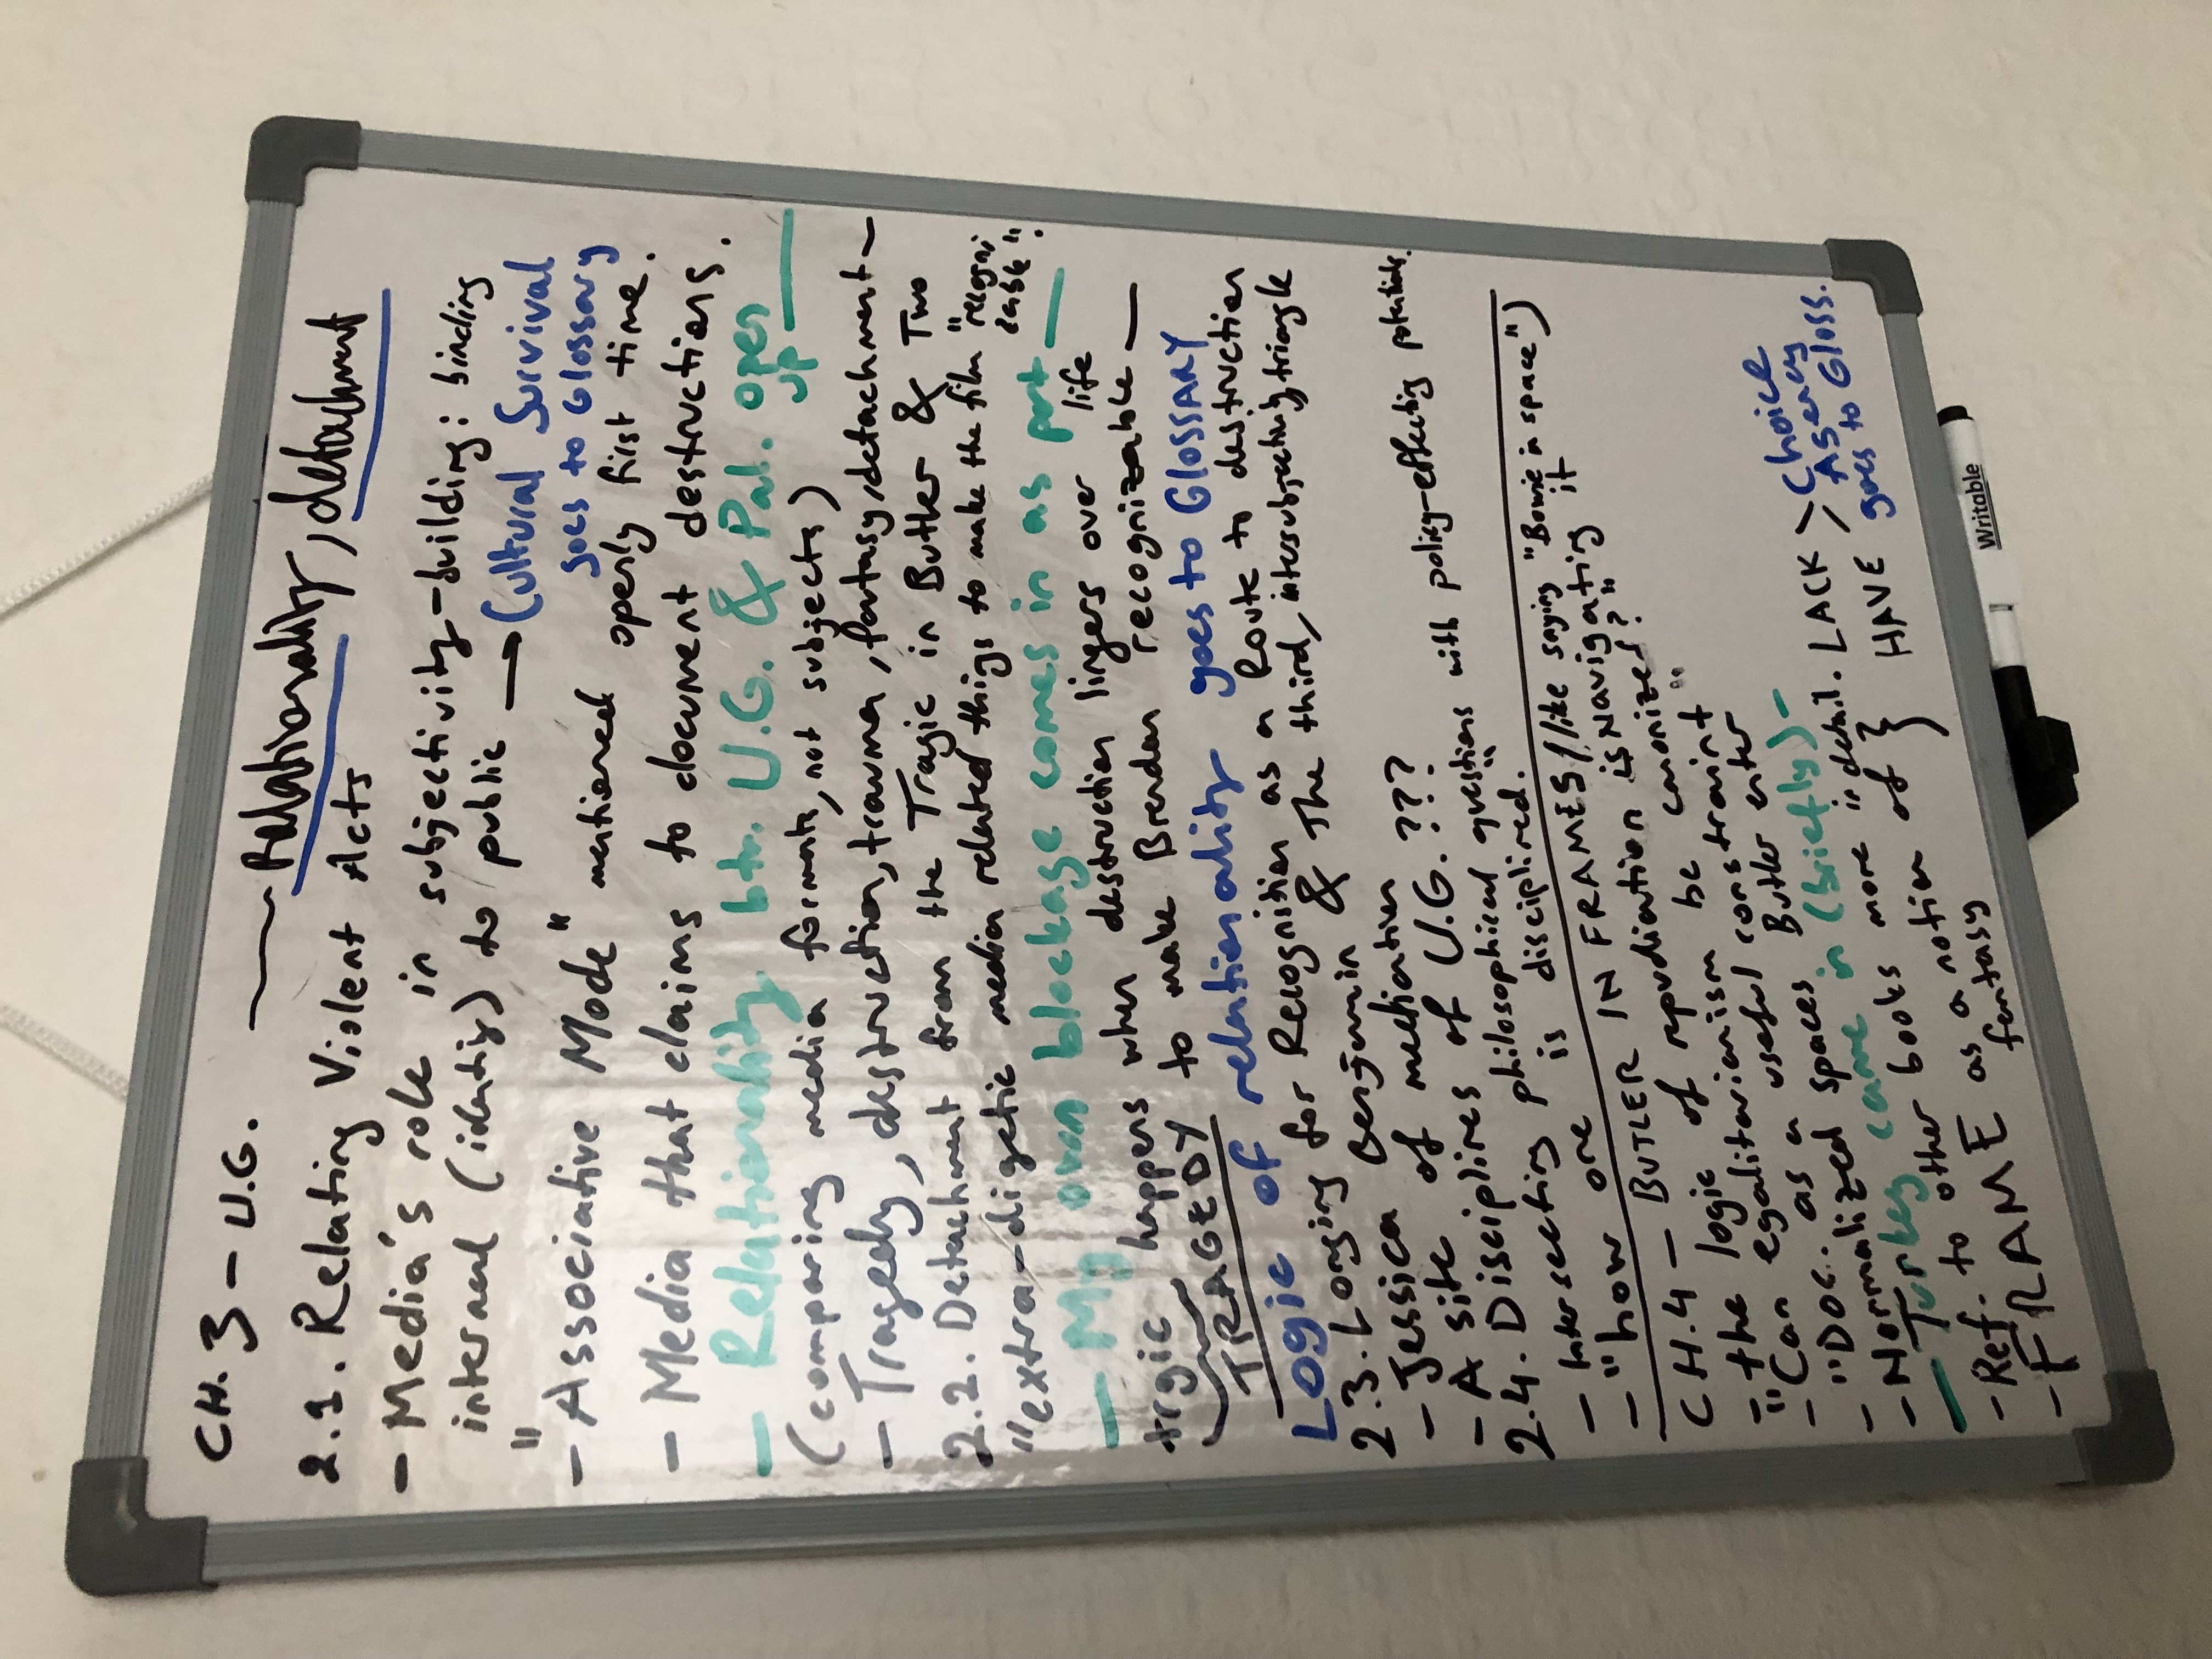 CH. 3 - U.G. Relationality, detachment
2.1. Relating Violent Acts
- Media's role in subjectivity-building: binding
internal (identity) to public → Cultural Survival
goes to Glossary
- "Associative Mode" mentioned openly first time.
- Media that claims to document destructions.
- Relationality btn. U.G. & Pal. open up
(comparing media formats, not subjects)
- Tragedy, destruction, trauma, fantasy, detachment -
2.2. Detachment from the Tragic in Butler & Two
"extra-digetic media related things to make the film "recogni
zable".
- My own blockage comes in as part
trgic happens when destruction lingers over life
TRAGEDY to make Brenden recognizable -
Logic of relationality goes to GLOSSARY
2.3. Longing for Recognition as a Route to destruction
- Jessica Benjamin & The third, intersubjectivity, triangle
- A site of mediation
2.4. Disciplines of U.G. ???
- Intersecting philosophical questions with policy-effecting potentials.
- "how one is disciplined.
CH.4 - BUTLER IN FRAMES (like saying "Bowie in space")
- "the logic of repudiation is Navigating it
- "Can egalitarianism be canonized?"
- "Doc. as a useful constraint"
- Normalized spaces Butler enter
- Turkey came in (briefly) -
- Ref. to other books more in detail. LACK > Choice
Agency
- FRAME as a notion of } HAVE goes to Gloss.
fantasy
Writable